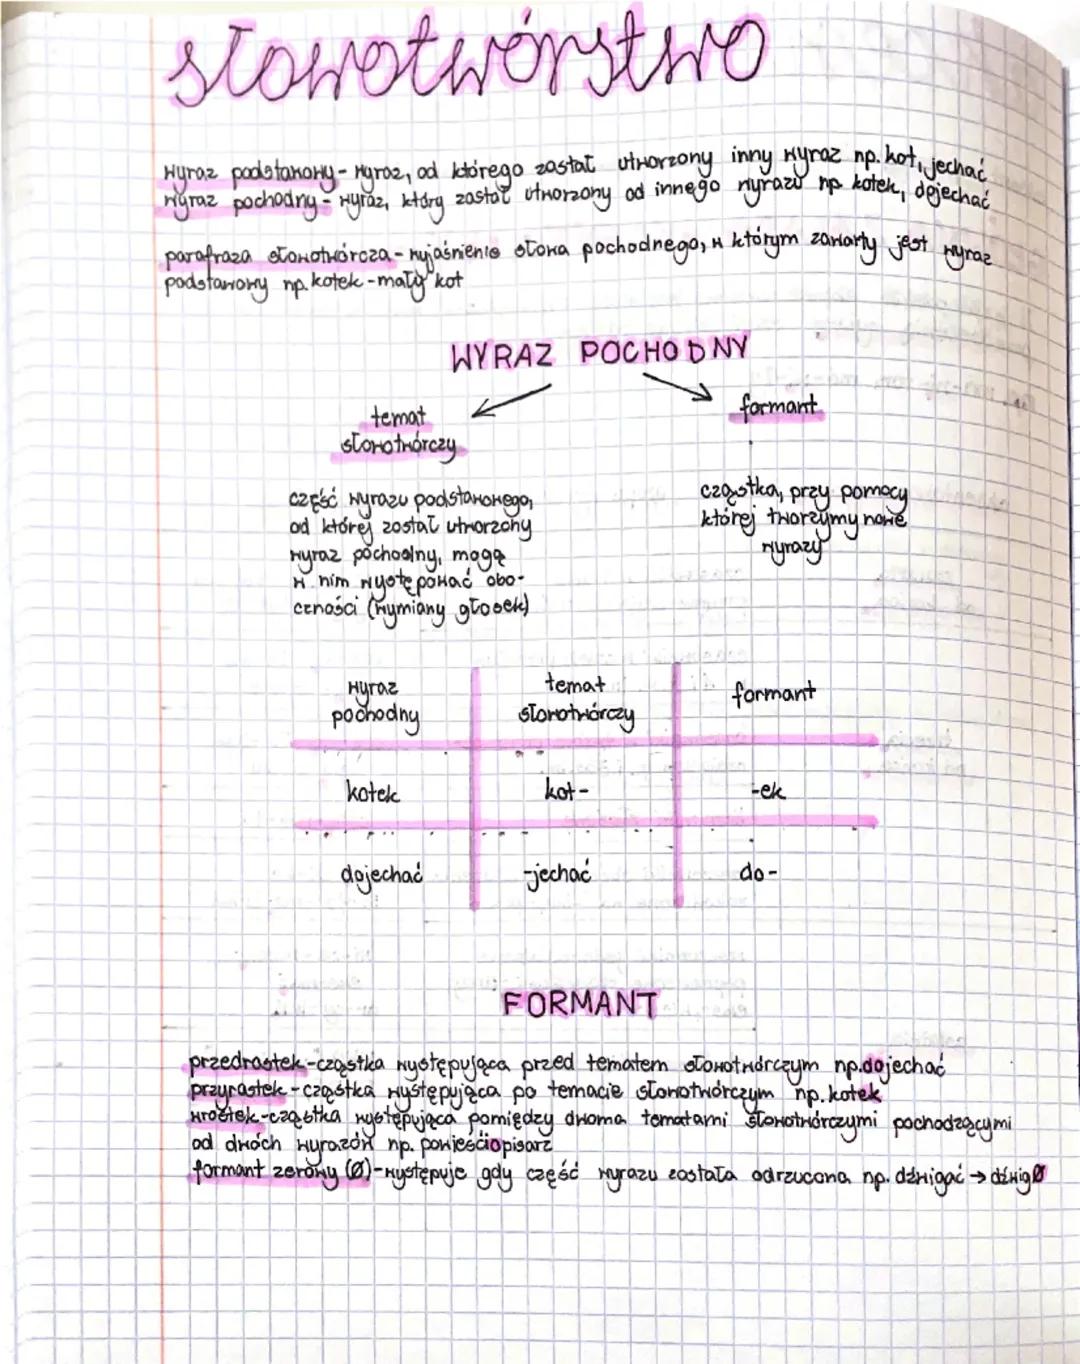 słowotwórstwo
wyraz podstawowy - wyraz, od którego został utworzony inny wyraz np. kot, jechać
wyraz pochodny - wyraz, który został utworzony od innego wyrazu np kotek, dojechać
parafraza słowotwórcza - wyjaśnienie słowa pochodnego, w którym zawarty jest wyraz
podstawowy np. kotek - mały kot
WYRAZ POCHODNY
temat
słowotwórczy
formant
część wyrazu podstawowego,
od której został utworzony
wyraz pochodny, mogą
w nim występować obo-
czności (wymiany głosek)
cząstka, przy pomocy
której tworzymy nowe
wyrazy
wyraz pochodny | temat słowotwórczy | formant
kotek | kot- | -ek
dojechać | -jechać | do-
FORMANT
przedrostek - cząstka występująca przed tematem słowotwórczym np. dojechać
przyrostek - cząstka występująca po temacie słowotwórczym np. kotek
wrostek - cząstka występująca pomiędzy dwoma tematami słowotwórczymi pochodzącymi
od dwóch wyrazów np. powieściopisarz
formant zerowy (Ø) - występuje gdy część wyrazu została odrzucona np. dźwigać → dźwigØ